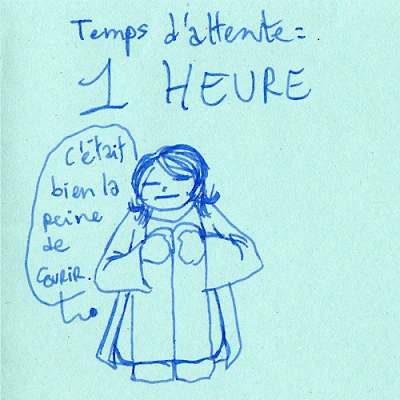 Temps d'attente =
1 HEURE
C'était
bien la
peine
de
COURIR.